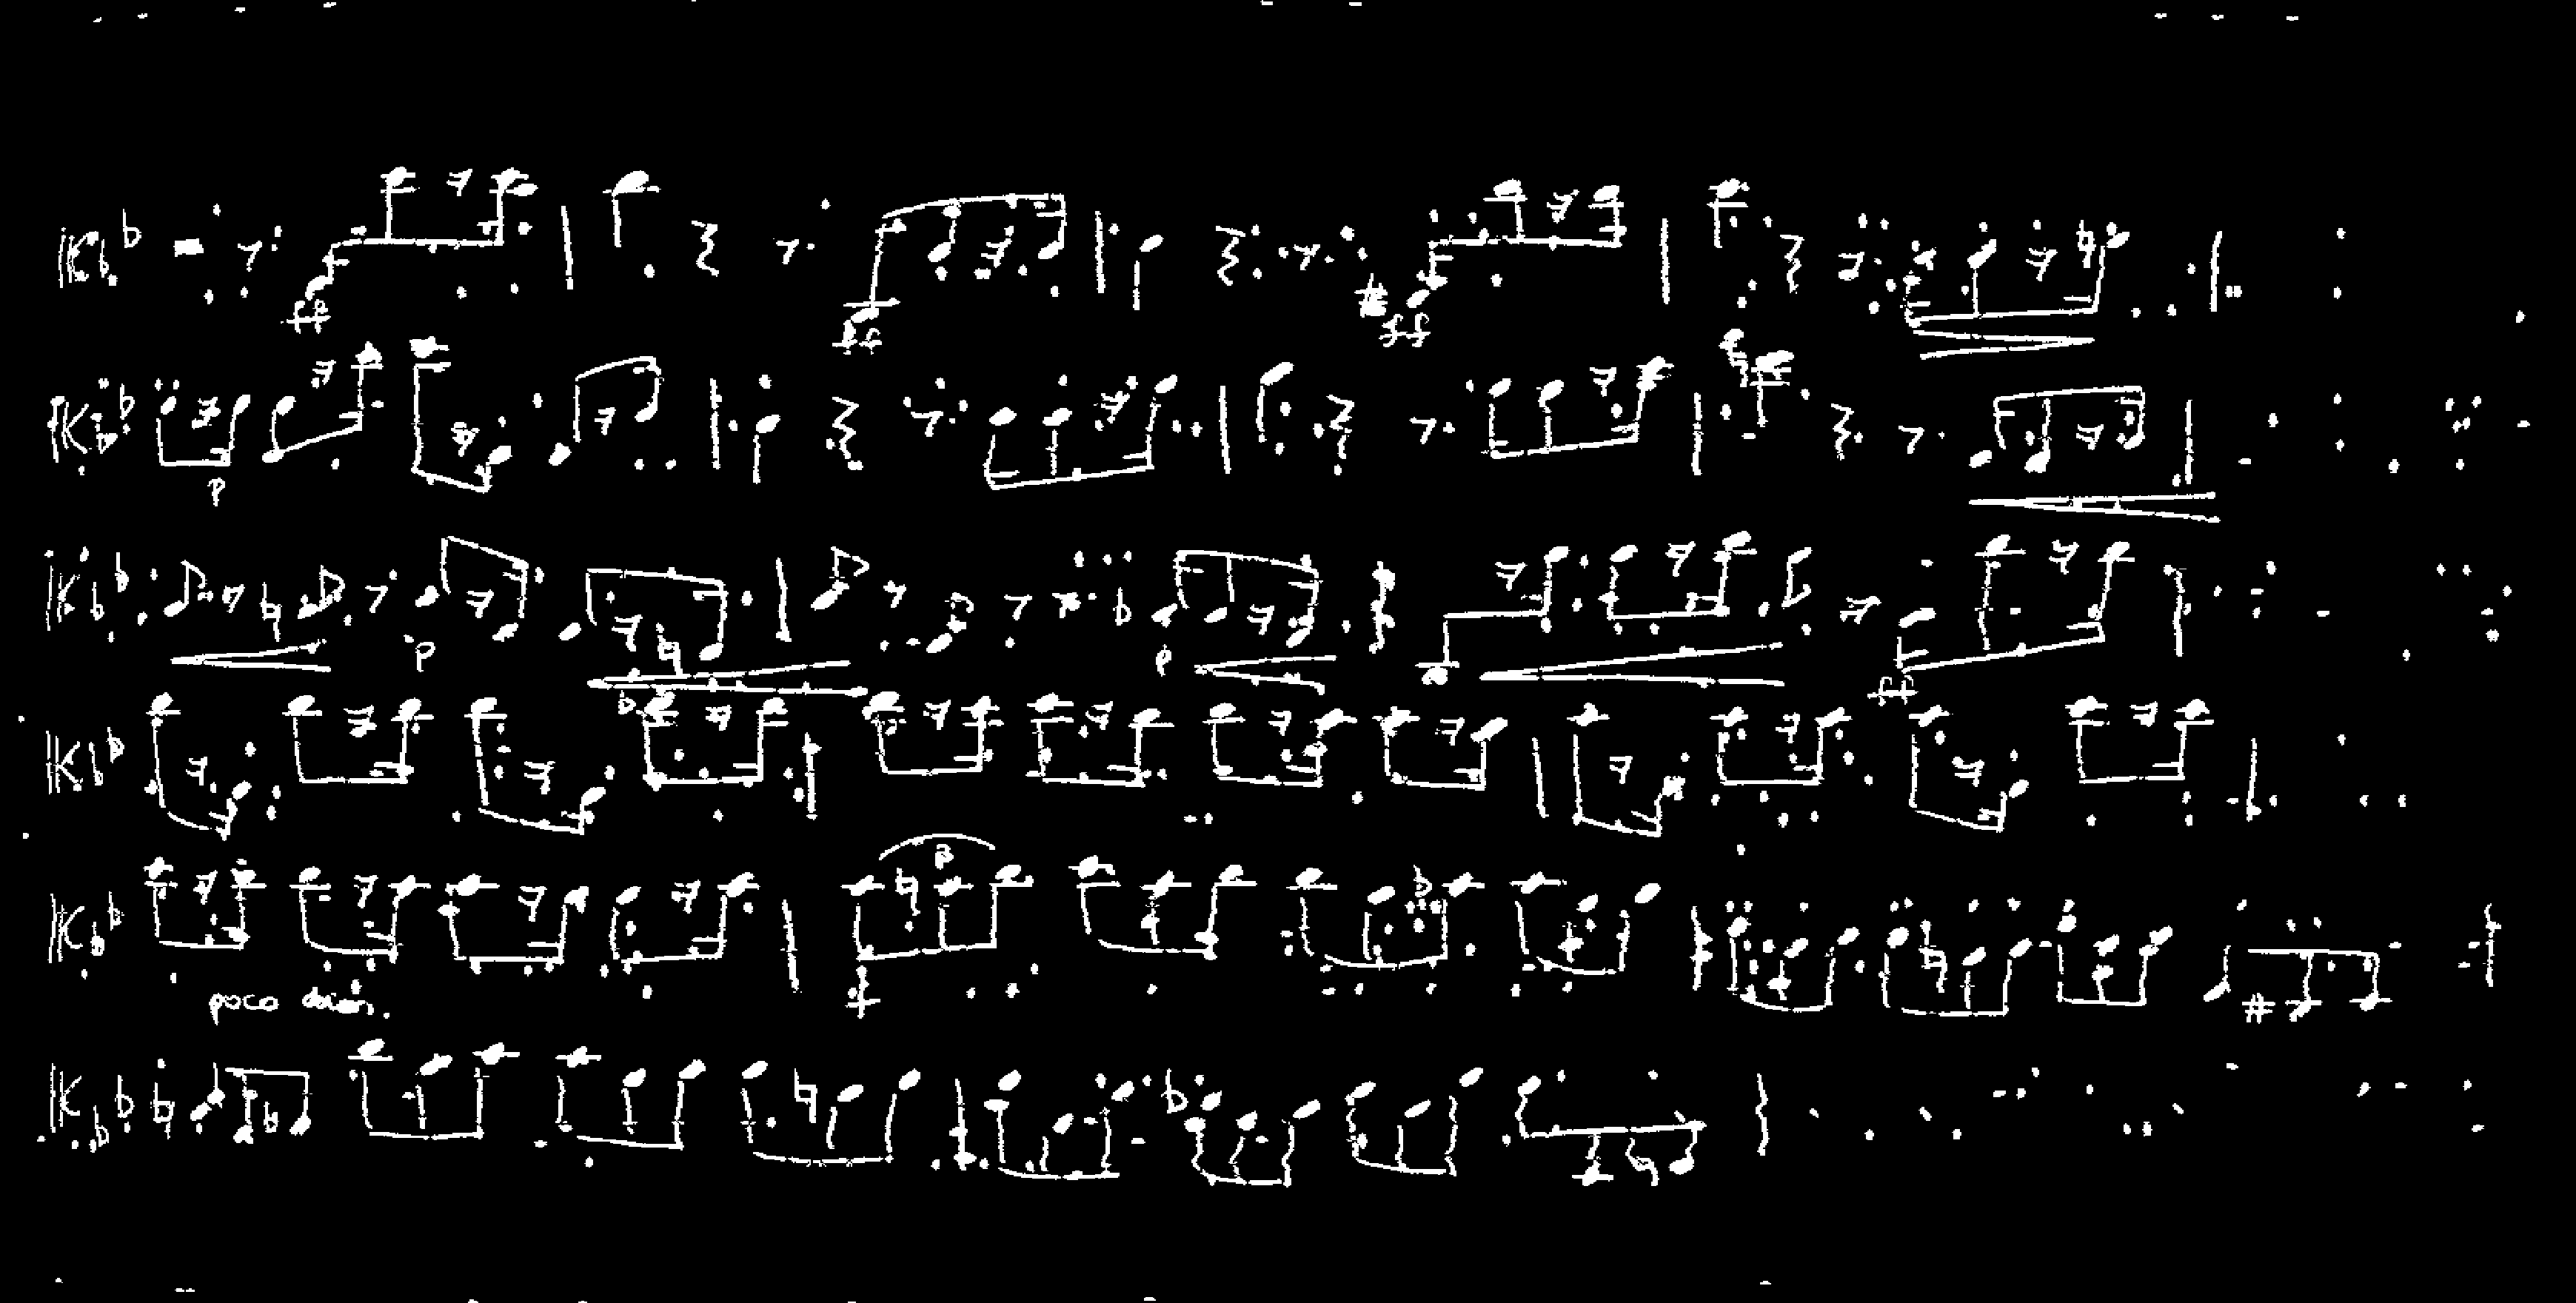 ff ff ff
p
p p ff
3
poco dim.